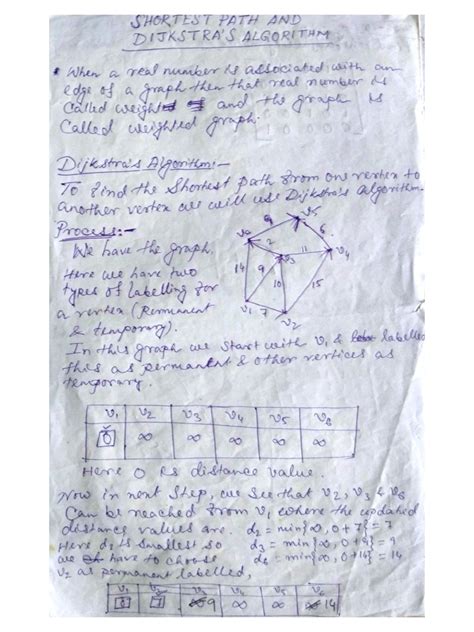 SHORTEST PATH AND
DIJKSTRA'S ALGORITHM
* When a real number is associated with an
edge of a graph then that real number is
called weight and the graph is
called weighted graph.
Dijkstra's Algorithm:-
To find the shortest path from one vertex to
another vertex we will use Dijkstra's algorithm.
Process:-
We have the graph.
Here we have two
types of labelling for
a vertex (Permanent
& temporary).
9 v5
v6 2 6
11 v4
14 9 v3
10 15
v1 7
v2
In this graph we start with v1 & labelled
this as permanent & other vertices as
temporary.
v1 v2 v3 v4 v5 v6
0 ∞ ∞ ∞ ∞ ∞
Here 0 is distance value.
Now in next step, we see that v2, v3 & v6
can be reached from v1 where the updated
distance values are. d2 = min{∞, 0+7} = 7
Here d2 is smallest so d3 = min{∞, 0+9} = 9
we have to choose d6 = min{∞, 0+14} = 14
v2 as permanent labelled,
v1 v2 v3 v4 v5 v6
0 7 ∞ 9 ∞ ∞ ∞ 14